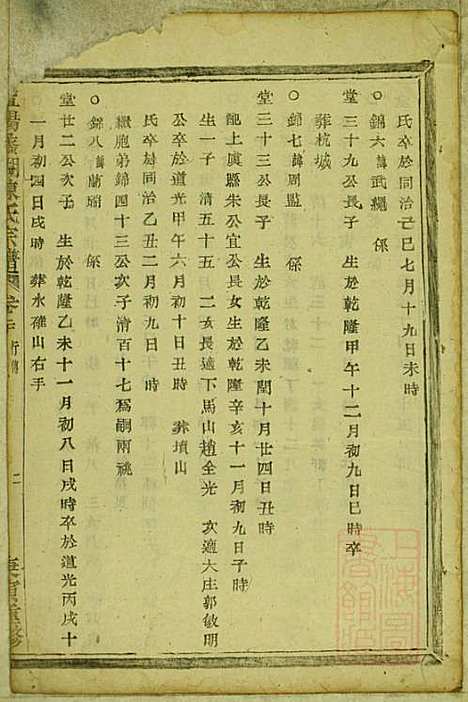 氏卒於同治己巳七月十九日未時
○錦六諱武繩 係
堂三十九公長子 生於乾隆甲午十二月初九日巳時卒
葬杭城
○錦七諱周監 係
堂三十三公長子 生於乾隆乙未閏十月廿四日丑時
配上虞縣朱公宜公長女生於乾隆辛亥十一月初九日子時
生一子 清五十五 二女長適下馬山趙全光 次適大庄郭敏明
公卒於道光甲午六月初十日丑時 葬墳山
氏卒於同治乙丑二月初九日午時
繼胞弟錦四十三公次子清百十七為嗣兩祧
○錦八諱蘭階 係
堂廿二公次子 生於乾隆乙未十一月初八日戌時卒於道光丙戌十
一月初四日戌時 葬水碓山右手
陳氏宗譜 卷二 行傳 二